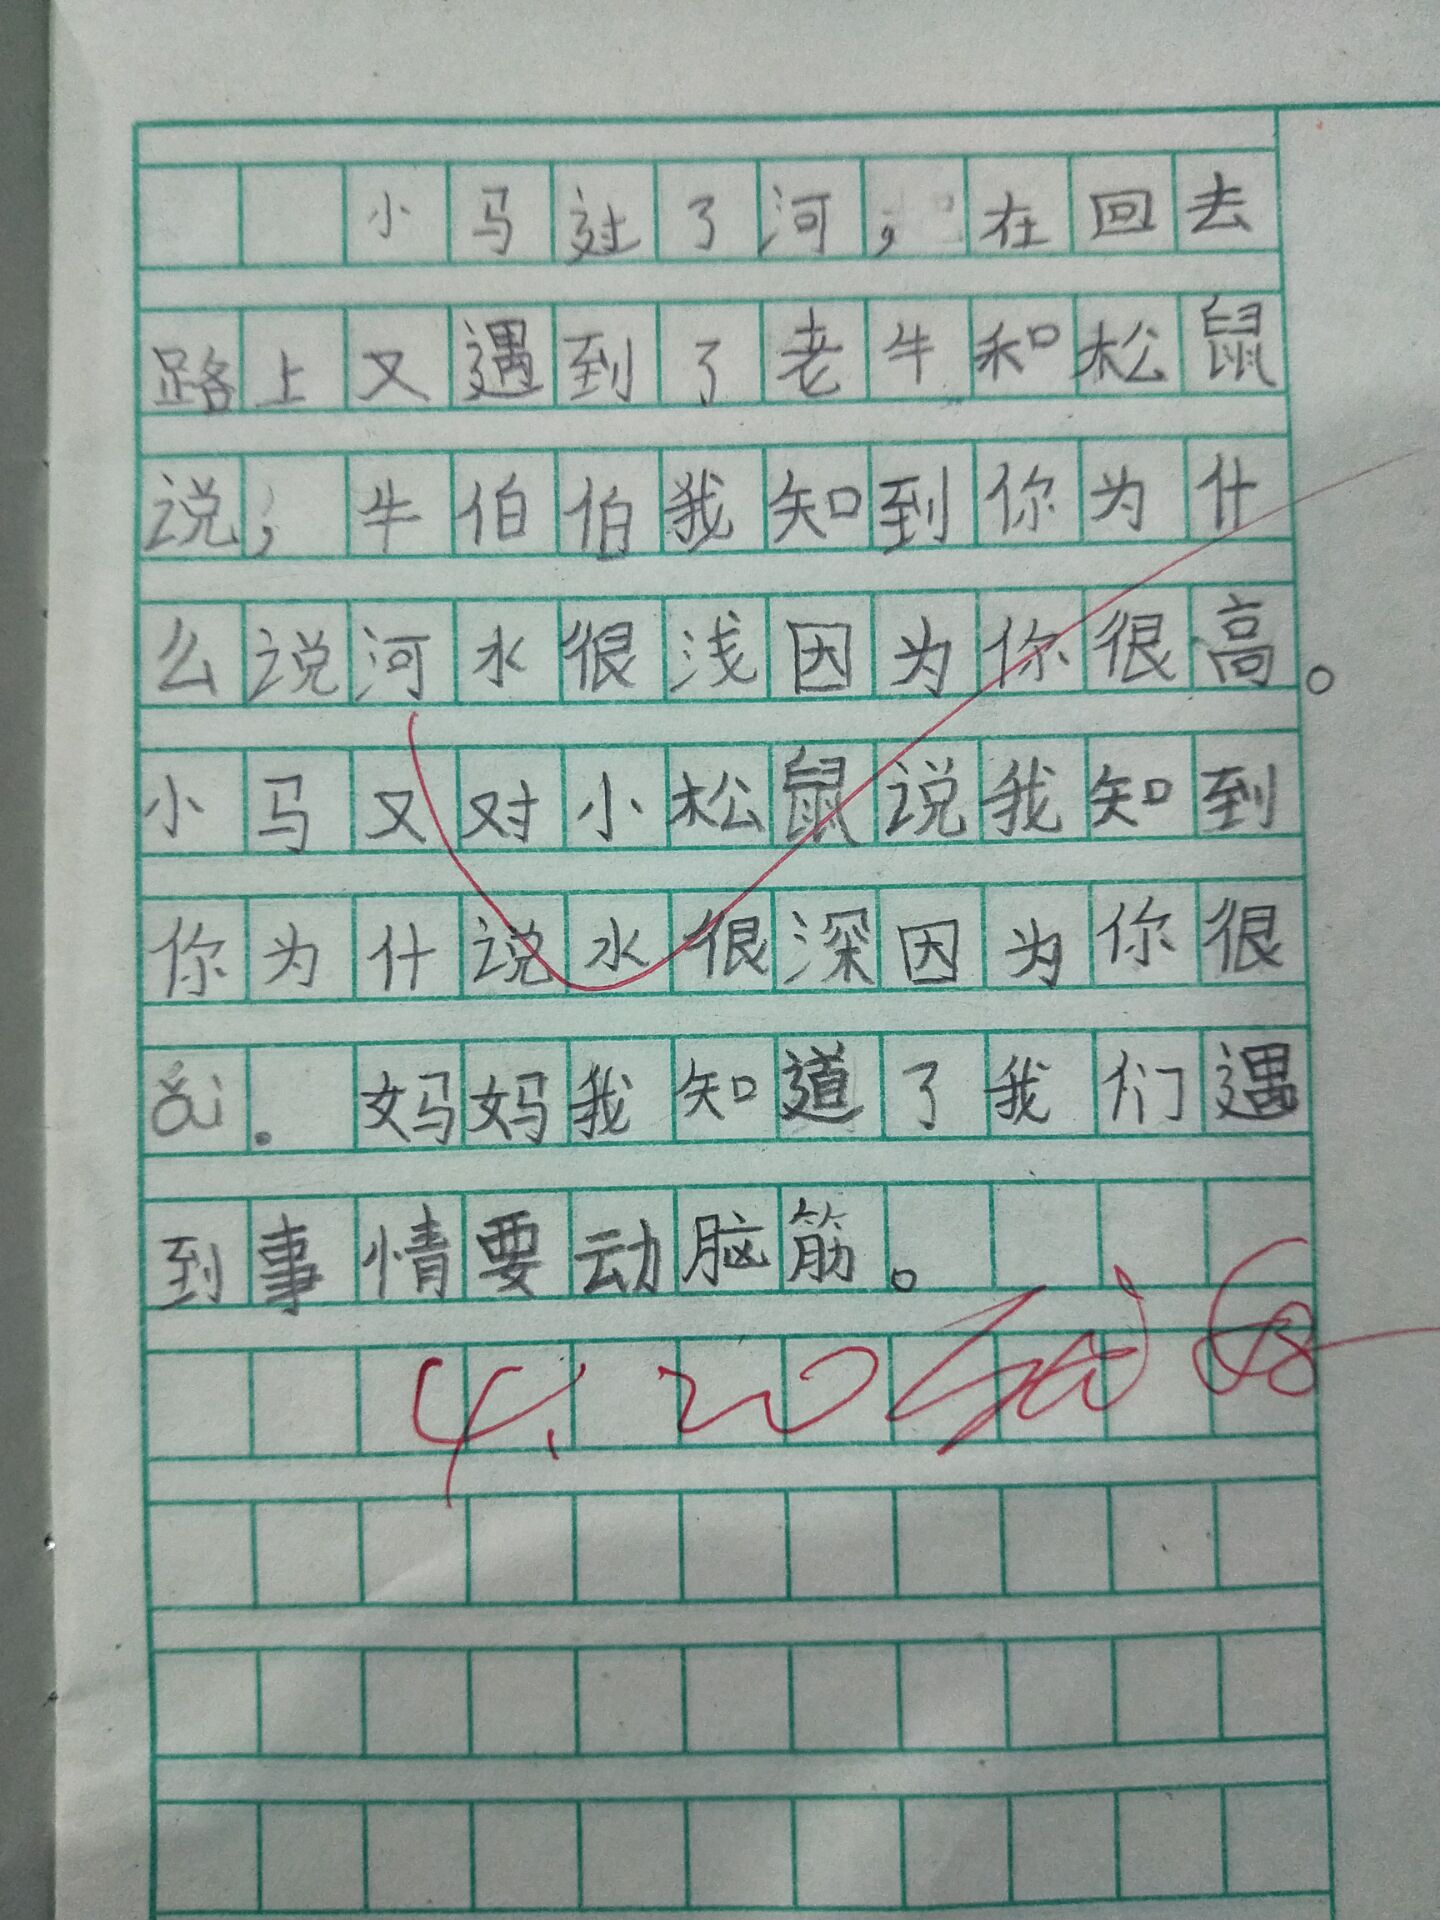 小马过了河，在回去
路上又遇到了老牛和松鼠
说，牛伯伯我知到你为什
么说河水很浅因为你很高。
小马又对小松鼠说我知到
你为什说水很深因为你很
ǎi．妈妈我知道了我们遇
到事情要动脑筋。
4.20